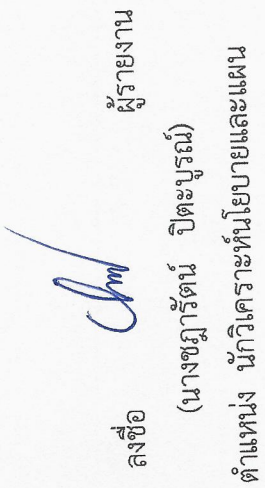 ลงชื่อ ผู้รายงาน
(นางชฎารัตน์ ปิตะบูรณ์)
ตำแหน่ง นักวิเคราะห์นโยบายและแผน